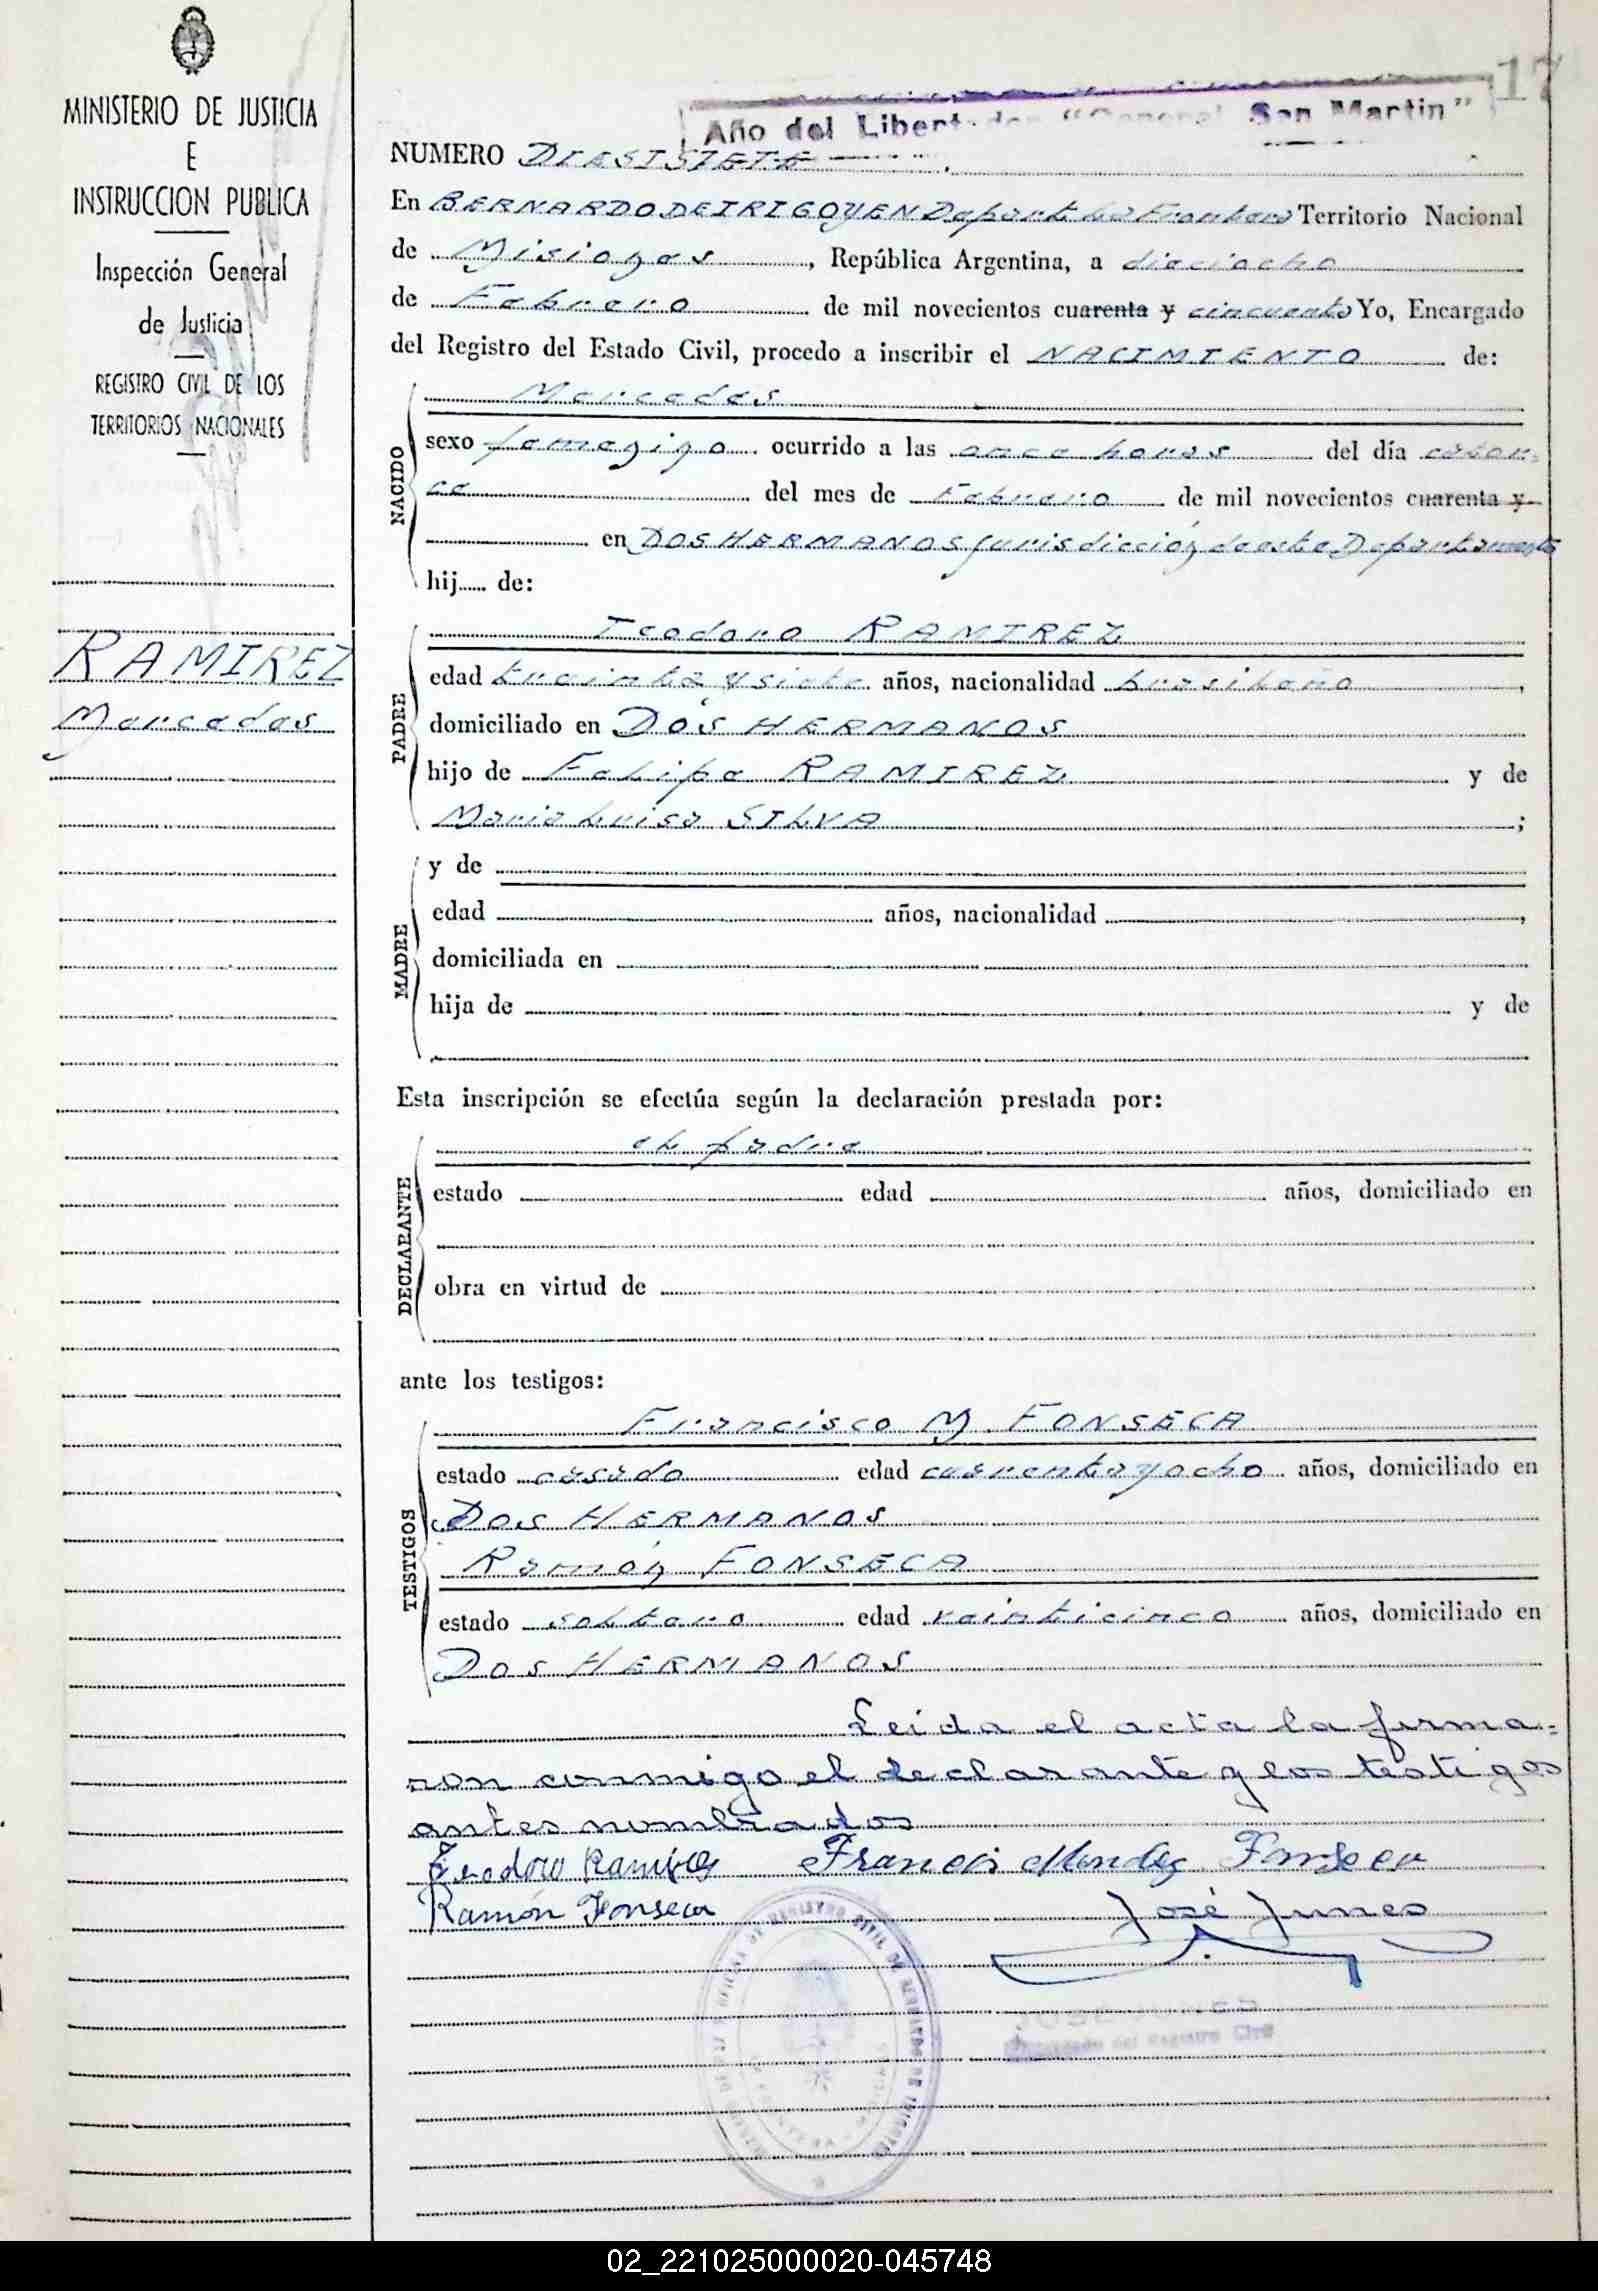 MINISTERIO DE JUSTICIA
E
INSTRUCCION PUBLICA
Inspección General
de Justicia
REGISTRO CIVIL DE LOS
TERRITORIOS NACIONALES
RAMIREZ
Mercedes
17
Año del Libertador "General San Martin"
NUMERO DIESISIETE
En BERNARDO DE IRIGOYEN Depart La Frontera Territorio Nacional
de Misiones, República Argentina, a dieciocho
de Febrero de mil novecientos cuarenta y cincuenta Yo, Encargado
del Registro del Estado Civil, procedo a inscribir el NACIMIENTO de:
NACIDO
Mercedes
sexo femenino ocurrido a las once horas del día cator=
ce del mes de Febrero de mil novecientos cuarenta y
en DOS HERMANOS jurisdicción de este Departamento
hij de:
PADRE
Teodoro RAMIREZ
edad treinta y siete años, nacionalidad brasileño,
domiciliado en DOS HERMANOS
hijo de Felipe RAMIREZ y de
Maria Luisa SILVA;
MADRE
y de
edad años, nacionalidad ,
domiciliada en
hija de y de
Esta inscripción se efectúa según la declaración prestada por:
DECLARANTE
el padre
estado edad años, domiciliado en
obra en virtud de
ante los testigos:
TESTIGOS
Francisco M. FONSECA
estado casado edad cuarenta y ocho años, domiciliado en
DOS HERMANOS
Ramón FONSECA
estado soltero edad veinticinco años, domiciliado en
DOS HERMANOS
Leida el acta la firma=
ron conmigo el declarante y los testigos
antes nombrados
Teodoro Ramires Francis Mendes Fonseca
Ramón Fonseca José Junes
JOSE JUNES
Encargado del Registro Civil
02_221025000020-045748